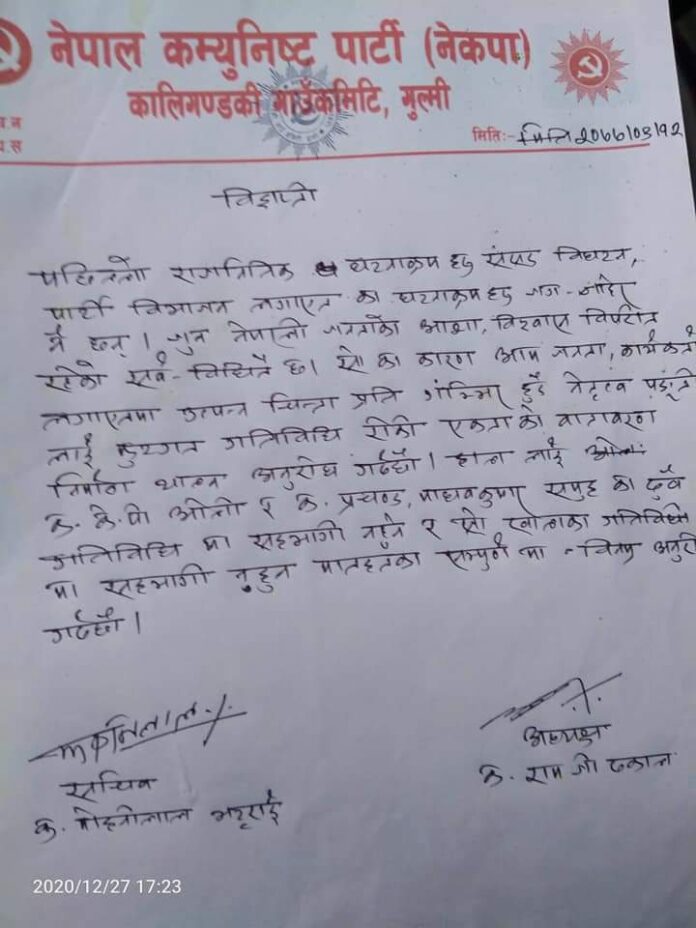 नेपाल कम्युनिष्ट पार्टी (नेकपा)
कालिगण्डकी गाउँकमिटि, गुल्मी
प.स
मिति:- मिति २०७७/०९/१२
विज्ञप्ती
पछिल्लो राजनितिक घटनाक्रम हरु संसद विघटन,
पार्टी विभाजन लगाएत का घटनाक्रम हरु जग-जाहेर
नै छन् । जुन नेपाली जनताको आशा, विश्वास विपरीत
रहेको सर्व-विधितै छ। सो का कारण आम जनता, कार्यकर्ता
लगाएतमा उत्पन्न चिन्ता प्रति गंम्भिर हुदै नेतृत्व पङ्ती
लाई गुटगत गतिविधि रोकी एकताको वातावरण
निर्माण थाल्न अनुरोध गर्दछौं । हाल लाई
क. के.पी ओली र क. प्रचण्ड, माधवकुमार समुह का दुवै
गतिविधि मा सहभागी नहुने र सो खालका गतिविधि
मा सहभागी नुहुन मातहतका सम्पुर्ण मा विनम्र अनुरो
गर्दछौं ।
सचिव
क. मोहनीलाल भट्टराई
अध्यक्ष
क. राम जी ढकाल
2020/12/27 17:23